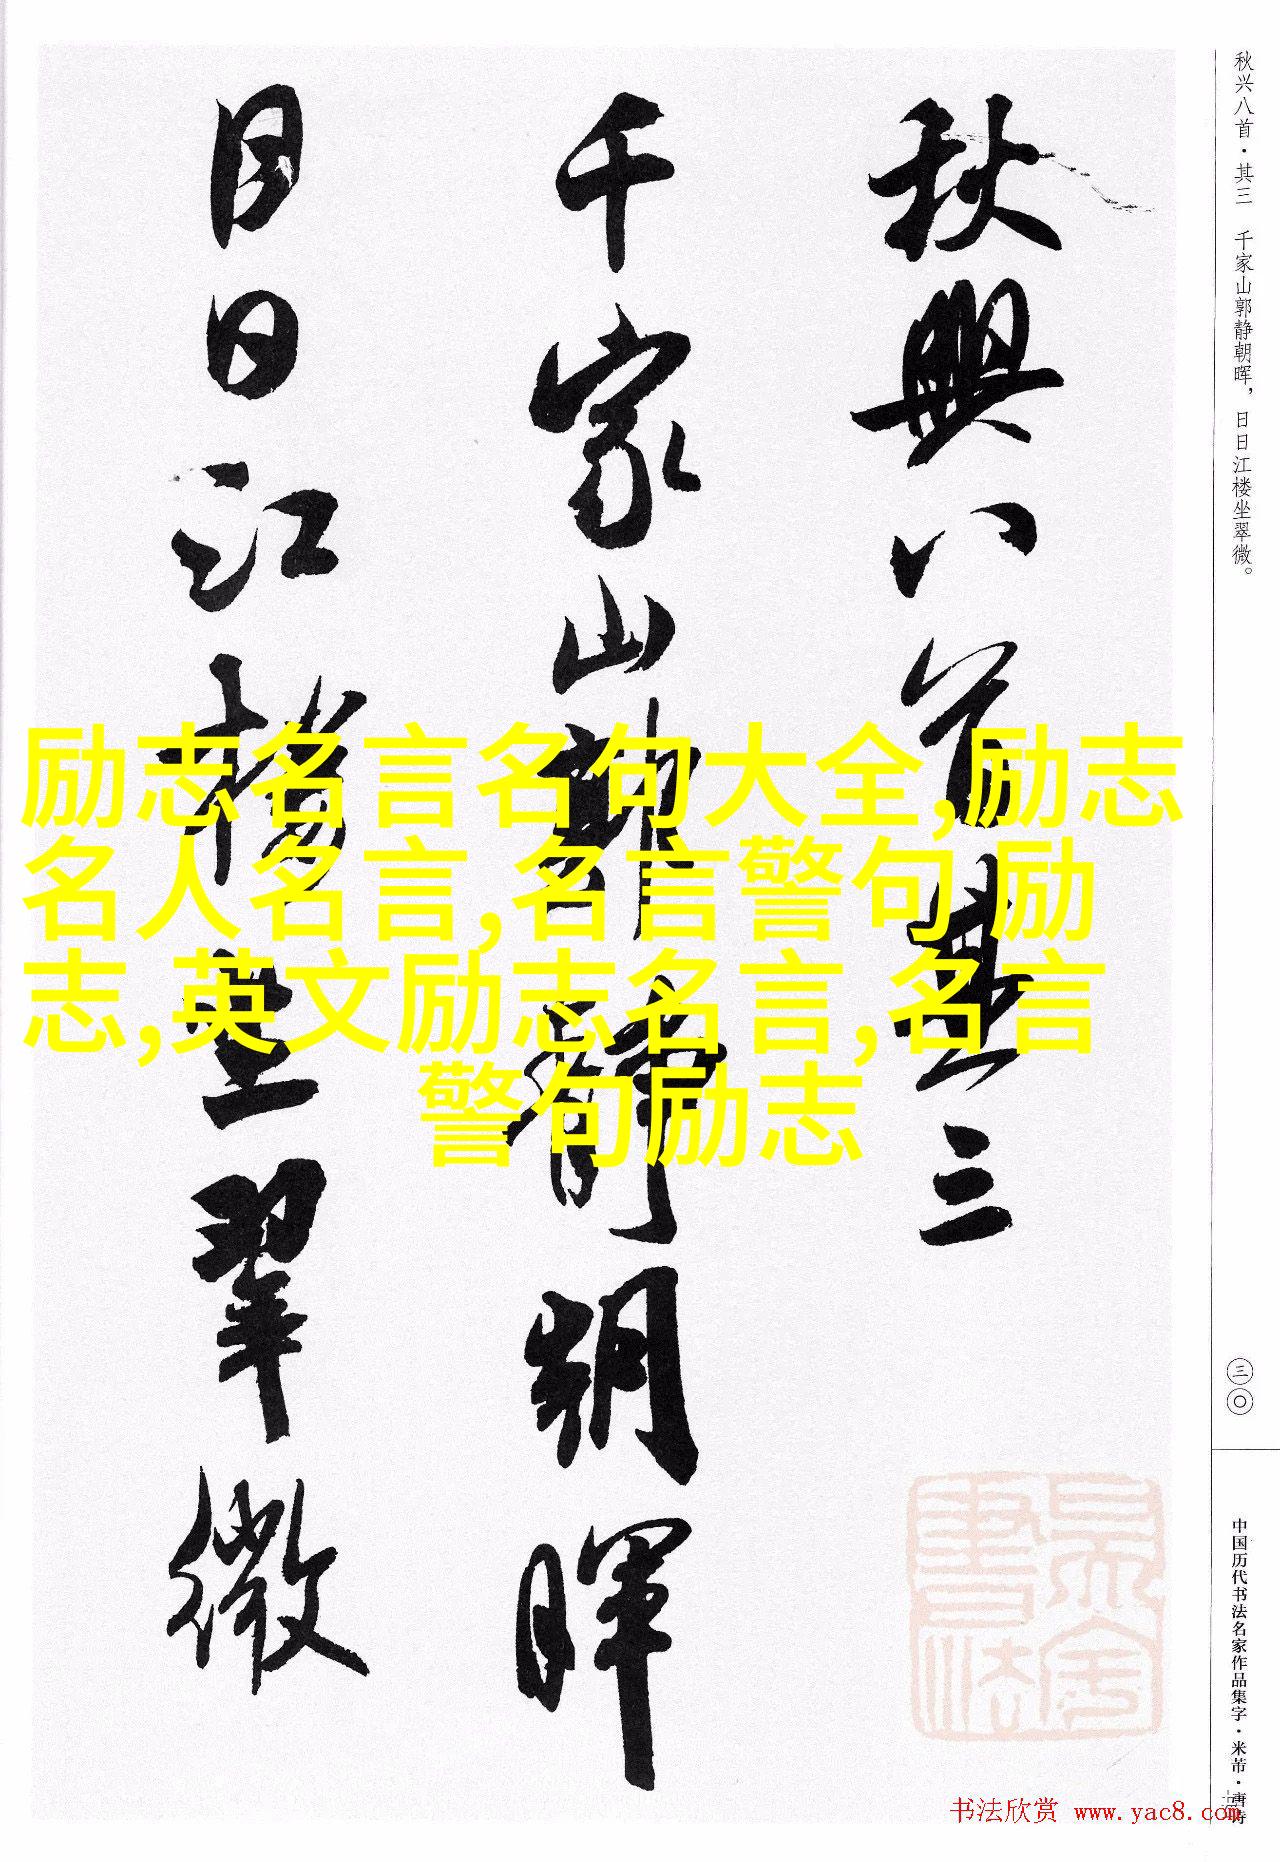 秋興八首其三
千家山郭静朝暉
日日江樓坐翠微
秋兴八首·其三 千家山郭静朝晖，日日江楼坐翠微。
三〇
中国历代书法名家作品集字·米芾·唐诗
励志名言名句大全,励志
名人名言,名言警句 励
志,英文励志名言,名言
警句励志
书法欣赏 www.yac8.com